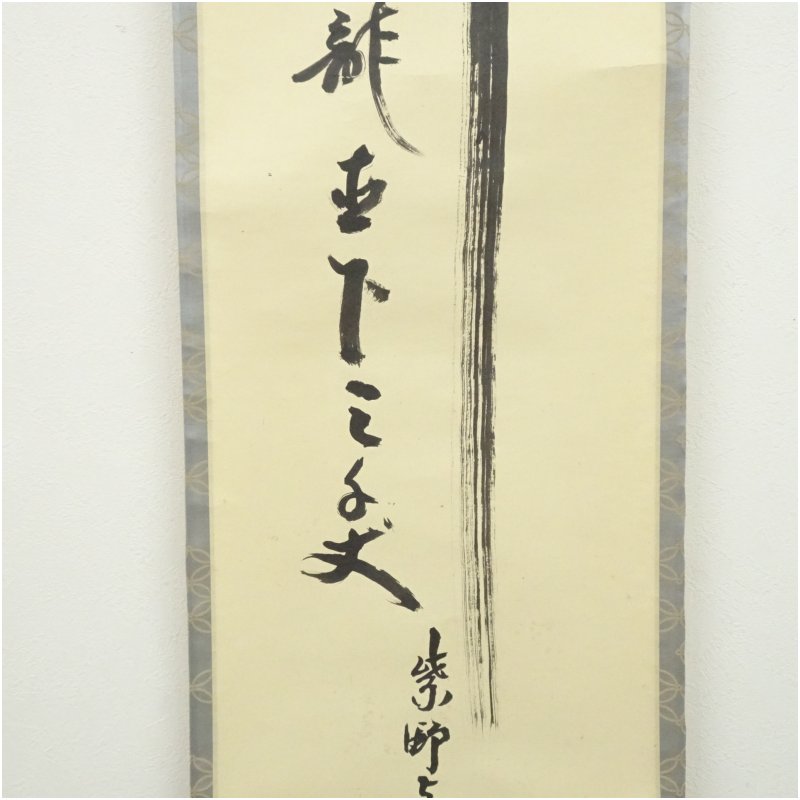 龍直下三千丈
紫野